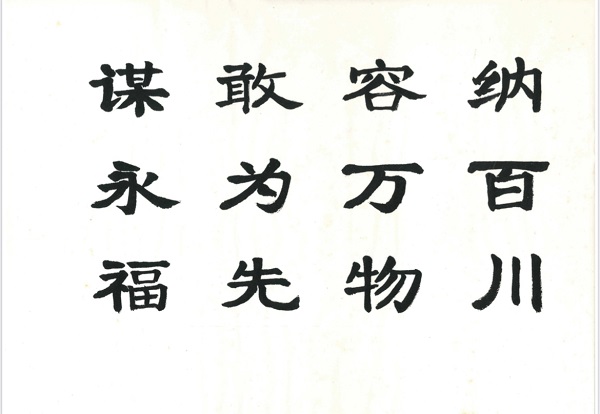 纳百川
容万物
敢为先
谋永福